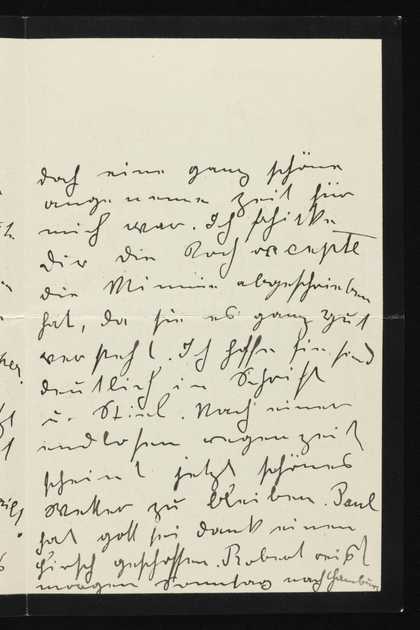 doch eine ganz schöne
angenehme Zeit für
mich war. Ich schicke
dir die Kochrecepte
die Minnie abgeschrieben
hat, da sie es ganz gut
versteht. Ich hoffe sie sind
deutlich in Schrift
u. Stiel. Nach einer
endlosen regenzeit
scheint jetzt schönes
Wetter zu bleiben. Paul
hat gott sei dank einen
Hirsch geschossen. Robert reist
morgen Sonntag nach Hamburg